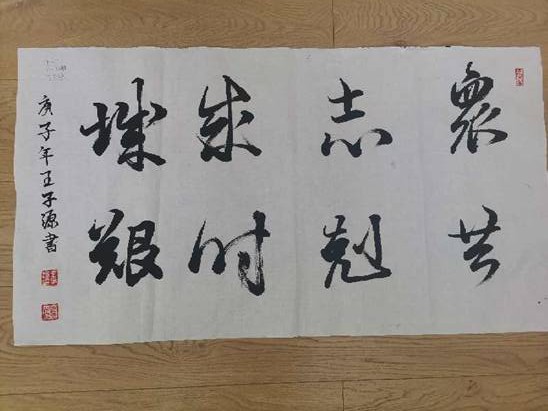 衆志成城
共剋时艱
庚子年王子源書